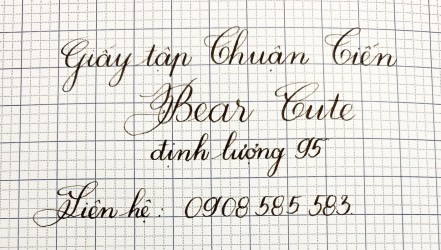 Giấy tập Chuận Tiến
Bear Cute
định lượng 95
Liên hệ: 0908 585 583